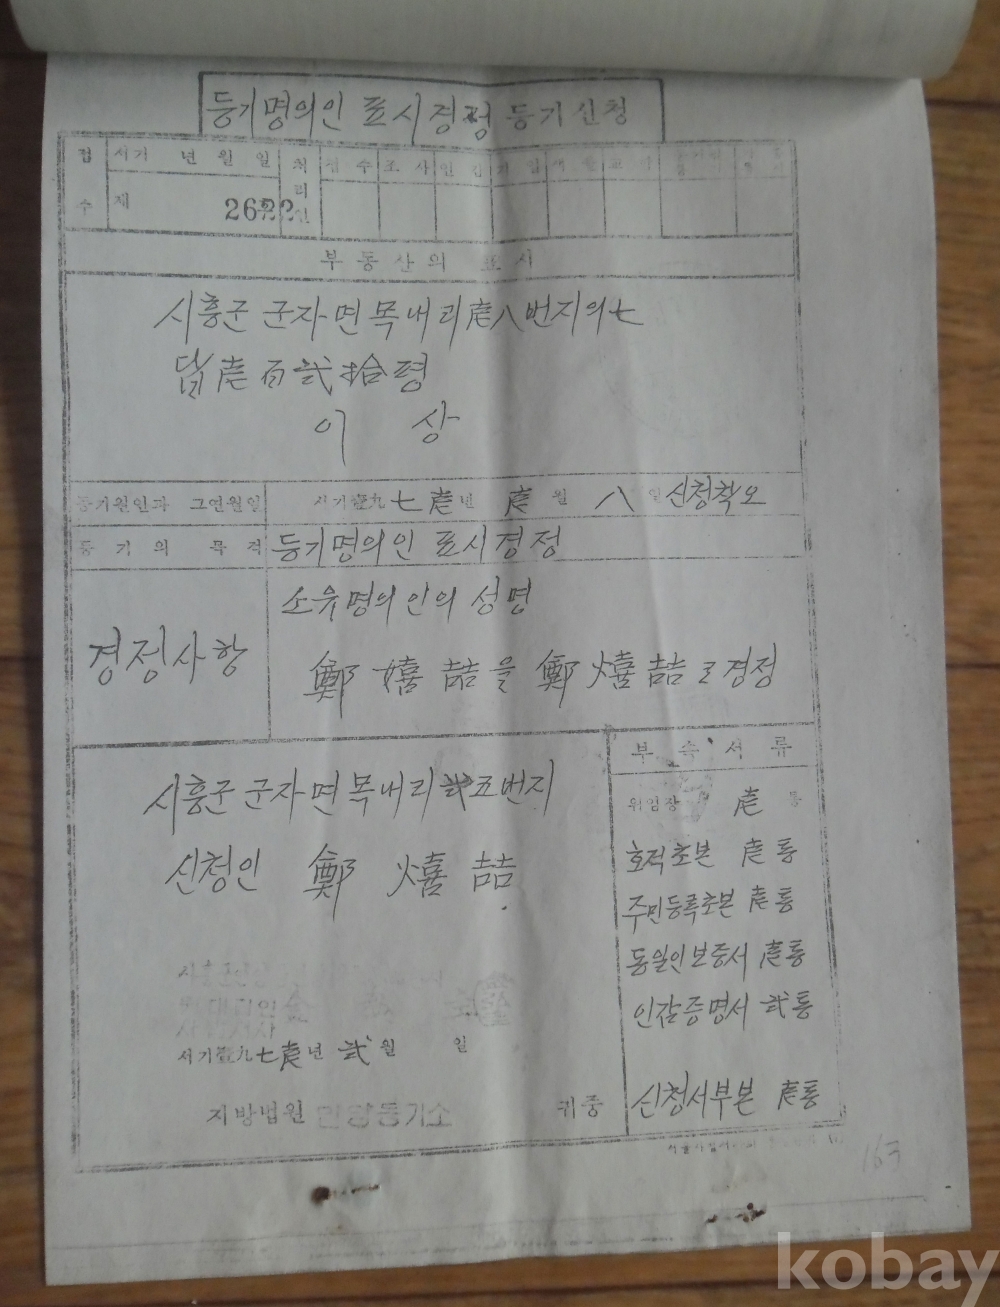 등기명의인 표시경정 등기신청
접수
서기 년 월 일
제 2622
처리인
부동산의 표시
시흥군 군자면 목내리 壱八번지의 七
답 壱百弐拾평
이 상
등기원인과 그연월일
서기壹九七壱년 壱월 八일 신청착오
등기의 목적
등기명의인 표시경정
경정사항
소유명의인의 성명
鄭嬉喆을 鄭熺喆로 경정
시흥군 군자면 목내리 弐五번지
신청인 鄭熺喆
서기壹九七壱년 弐월 일
지방법원 등기소 귀중
부속서류
위임장 壱통
호적초본 壱통
주민등록초본 壱통
동일인보증서 壱통
인감증명서 弐통
신청서부본 壱통
163
kobay